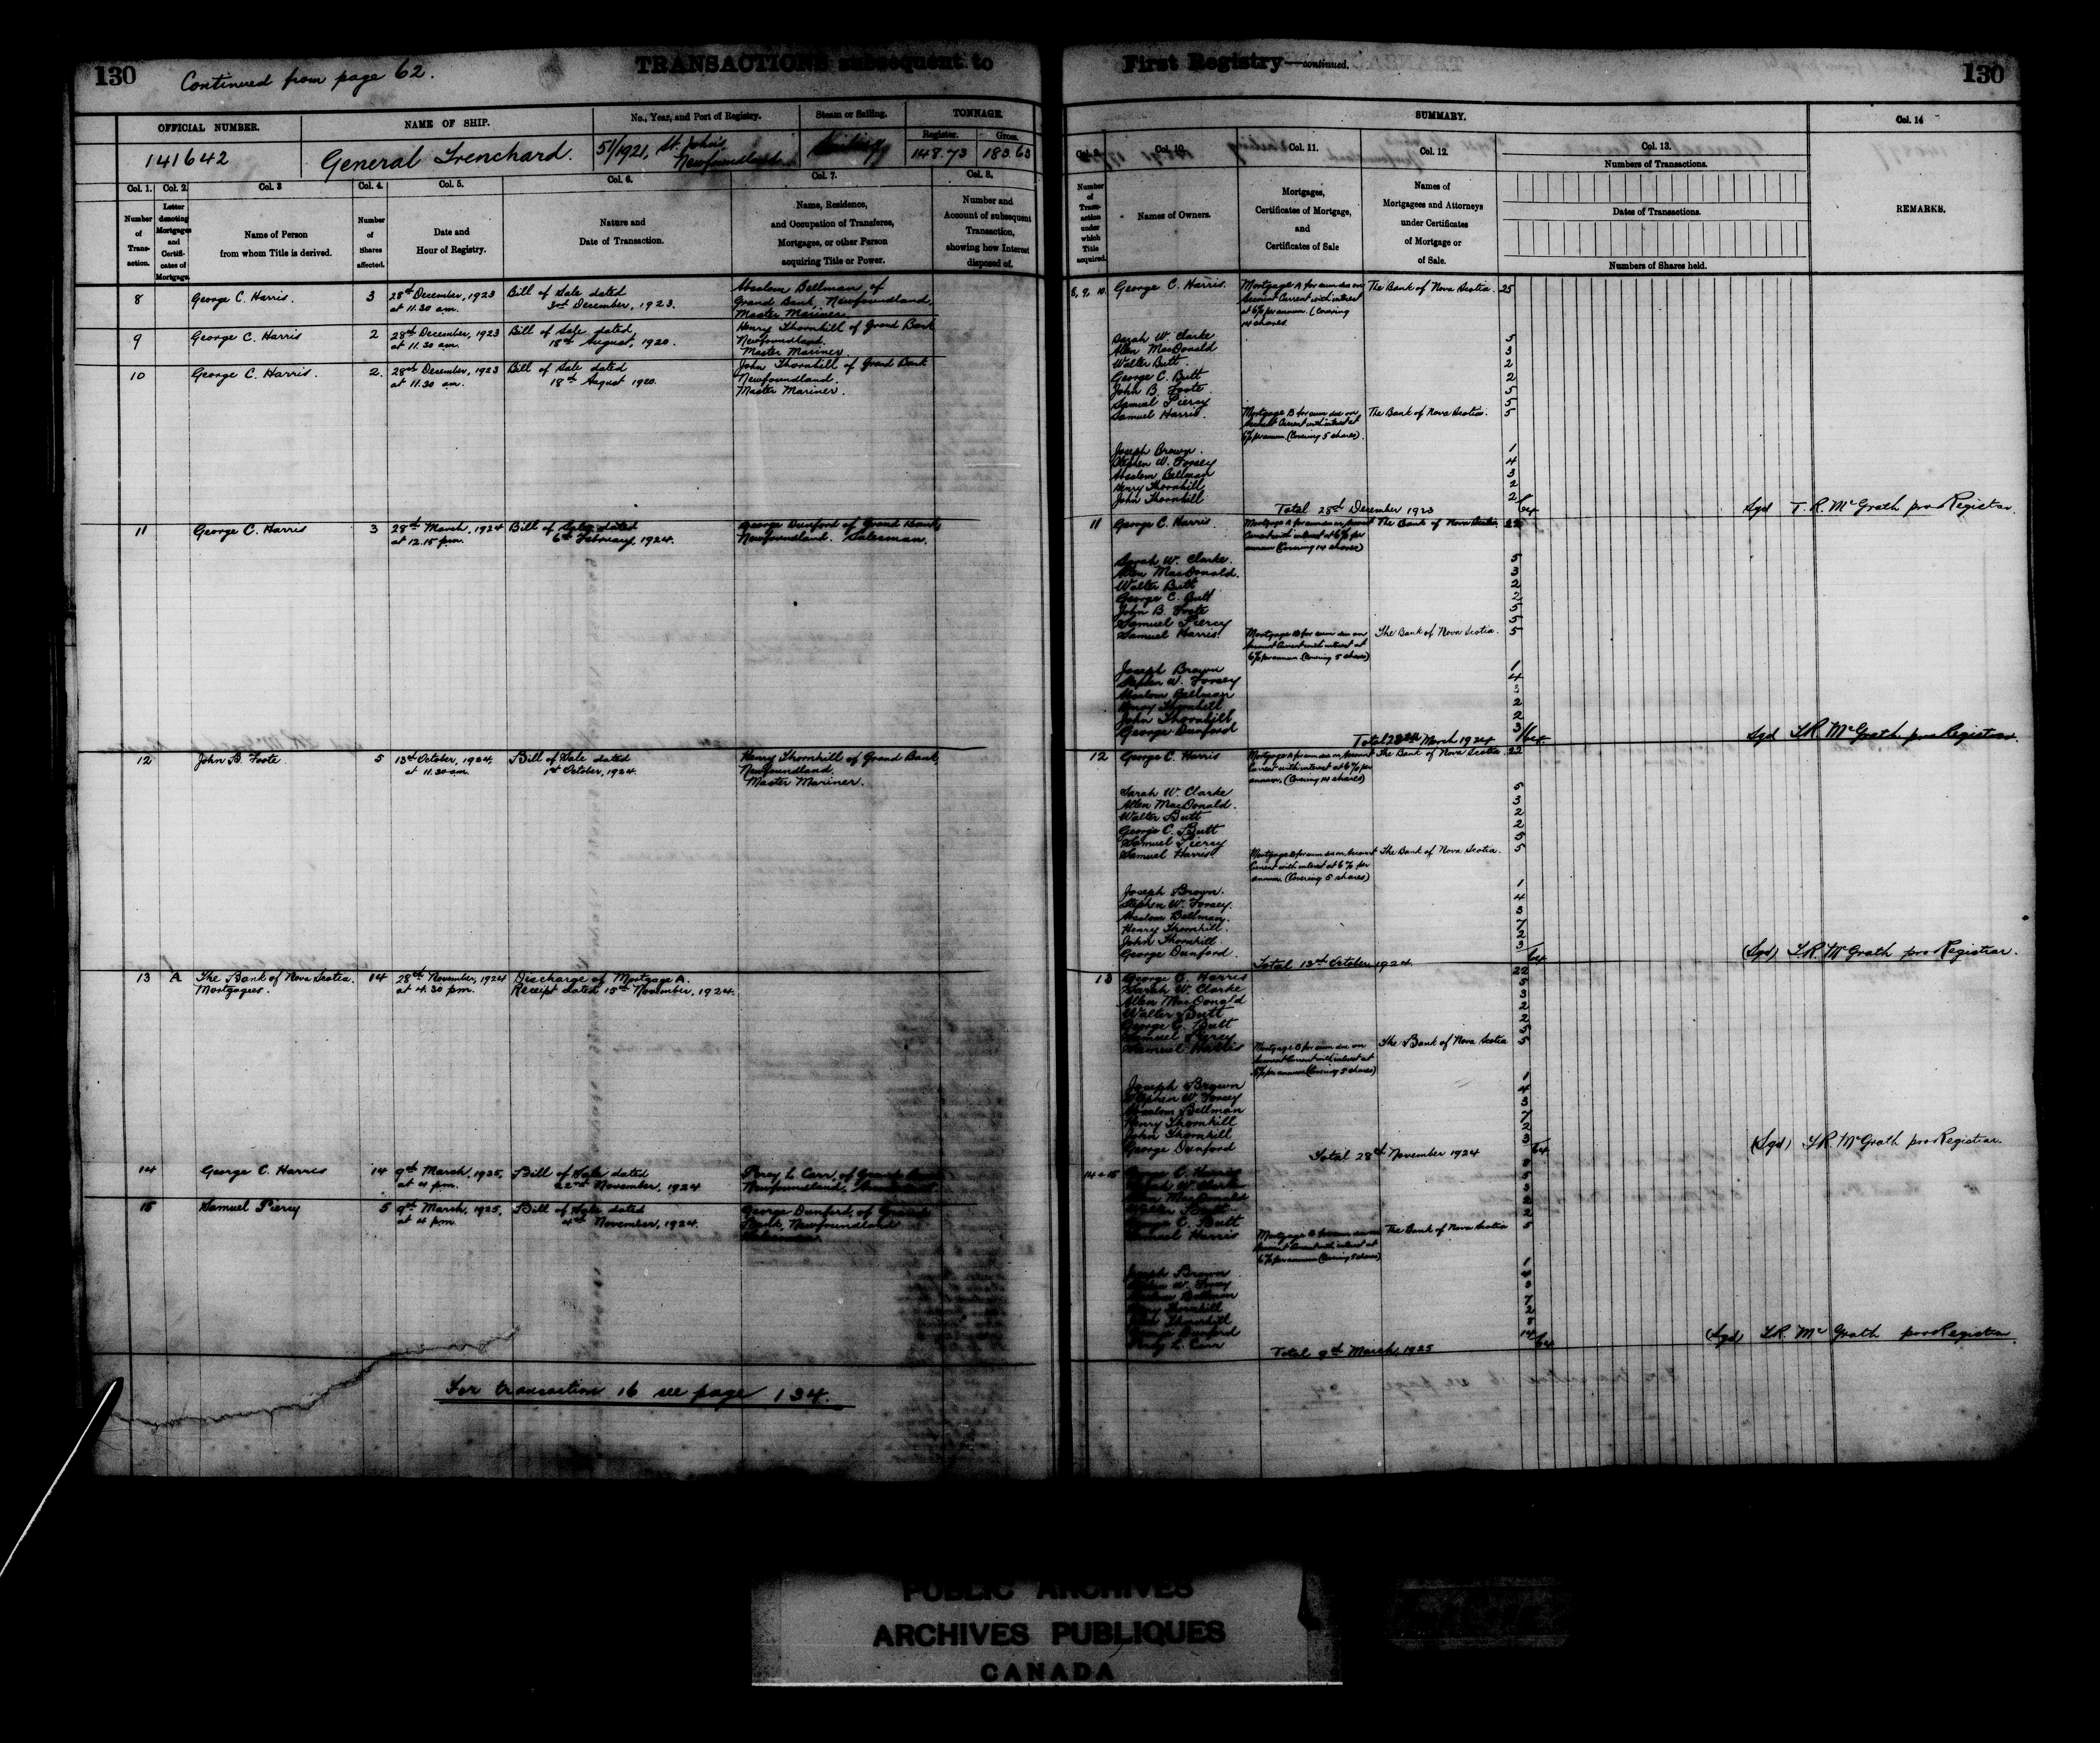 130
Continued from page 62.
TRANSACTIONS subsequent to
First Registry—continued.
130
OFFICIAL NUMBER.
NAME OF SHIP.
No., Year, and Port of Registry.
Steam or Sailing.
TONNAGE.
Register.
Gross.
141642
General Trenchard.
51/1921, St. John's,
Newfoundland
148.73
183.63
Col. 1.
Col. 2.
Col. 3
Col. 4.
Col. 5.
Col. 6.
Col. 7.
Col. 8.
Number
of
Trans-
action.
Letter
denoting
Mortgages
and
Certifi-
cates of
Mortgage.
Name of Person
from whom Title is derived.
Number
of
Shares
affected.
Date and
Hour of Registry.
Nature and
Date of Transaction.
Name, Residence,
and Occupation of Transferee,
Mortgagee, or other Person
acquiring Title or Power.
Number and
Account of subsequent
Transaction,
showing how Interest
disposed of.
8
George C. Harris.
3
28th December, 1923
at 11.30 am.
Bill of Sale dated
3rd December, 1923.
Absalom Bellman, of
Grand Bank, Newfoundland,
Master Mariner.
9
George C. Harris
2
28th December, 1923
at 11.30 am.
Bill of Sale dated
18th August, 1920.
Henry Thornhill of Grand Bank
Newfoundland.
Master Mariner.
10
George C. Harris.
2.
28th December, 1923
at 11.30 am.
Bill of Sale dated
18th August 1920.
John Thornhill of Grand Bank
Newfoundland.
Master Mariner.
11
George C. Harris
3
28th March, 1924
at 12.15 pm.
Bill of Sale dated
6th February, 1924.
George Dunford of Grand Bank,
Newfoundland. Salesman.
12
John B. Foote
5
13th October, 1924.
at 11.30 am.
Bill of Sale dated
1st October, 1924.
Henry Thornhill of Grand Bank,
Newfoundland.
Master Mariner.
13
A
The Bank of Nova Scotia.
Mortgagees.
14
28th November, 1924
at 4.30 pm.
Discharge of Mortgage A.
Receipt dated 15th November, 1924.
14
George C. Harris
14
9th March, 1925,
at 4 pm.
Bill of Sale dated
22nd November, 1924
Percy L. Carr, of Grand Bank
Newfoundland,
15
Samuel Piercy
5
9th March, 1925,
at 4 pm.
Bill of Sale dated
4th November, 1924.
George Dunford, of Grand
Bank, Newfoundland
For transaction 16 see page 134.
SUMMARY.
Col. 14
Col. 9.
Col. 10.
Col. 11.
Col. 12.
Col. 13.
Numbers of Transactions.
Number
of
Trans-
action
under
which
Title
acquired.
Names of Owners.
Mortgages,
Certificates of Mortgage,
and
Certificates of Sale
Names of
Mortgagees and Attorneys
under Certificates
of Mortgage or
of Sale.
Dates of Transactions.
Numbers of Shares held.
REMARKS.
8, 9, 10.
George C. Harris.
Mortgage A for sum due on
Account Current with interest
at 6% per annum. (Covering
14 shares.
The Bank of Nova Scotia.
25
Sarah W. Clarke 5
Allen MacDonald 3
Walter Butt. 2
George C. Butt 2
John B. Foote. 5
Samuel Piercy 5
Samuel Harris.
Mortgage B for sum due on
Account Current with interest at
6% per annum. (Covering 5 shares).
The Bank of Nova Scotia.
5
Joseph Brown. 1
Stephen W. Forsey 4
Absalom Bellman 3
Henry Thornhill 2
John Thornhill 2
Total 28th December 1923
64
Sgd T. R. McGrath pro Registrar.
11
George C. Harris
Mortgage A for sum due on Account
Current with interest at 6% per
annum (Covering 14 shares)
The Bank of Nova Scotia.
22
Sarah W. Clarke. 5
Allen MacDonald. 3
Walter Butt 2
George C. Butt 2
John B. Foote 5
Samuel Piercy 5
Samuel Harris.
Mortgage B for sum due on
Account Current with interest at
6% per annum. (Covering 5 shares)
The Bank of Nova Scotia.
5
Joseph Brown 1
Stephen W. Forsey 4
Absalom Bellman 3
Henry Thornhill 2
John Thornhill 2
George Dunford 3
Total 28th March 1924
64
Sgd T.R. McGrath pro Registrar.
12
George C. Harris
Mortgage A for sum due on Account
Current with interest at 6% per
annum. (Covering 14 shares)
The Bank of Nova Scotia.
22
Sarah W. Clarke 5
Allen MacDonald. 3
Walter Butt 2
George C. Butt 2
Samuel Piercy 5
Samuel Harris.
Mortgage B for sum due on Account
Current with interest at 6% per
annum. (Covering 5 shares)
The Bank of Nova Scotia.
5
Joseph Brown. 1
Stephen W. Forsey. 4
Absalom Bellman. 3
Henry Thornhill. 7
John Thornhill 2
George Dunford. 3
Total 13th October 1924.
64
(Sgd) T.R. McGrath pro Registrar.
13
George C. Harris 22
Sarah W. Clarke 5
Allen MacDonald 3
Walter Butt 2
George C. Butt 2
Samuel Piercy 5
Samuel Harris
Mortgage B for sum due on
Account Current with interest at
6% per annum (Covering 5 shares)
The Bank of Nova Scotia
5
Joseph Brown 1
Stephen W Forsey 4
Absalom Bellman 3
Henry Thornhill 7
John Thornhill 2
George Dunford 3
Total 28th November 1924
64
(Sgd) T.R. McGrath pro Registrar.
14 & 15
George C. Harris 8
Sarah W. Clarke 5
Allen MacDonald 3
Walter Butt 2
George C. Butt 2
Samuel Harris
Mortgage B for sum due on
Account Current with interest at
6% per annum (Covering 5 shares)
The Bank of Nova Scotia
5
Joseph Brown 1
Stephen W. Forsey 4
Absalom Bellman 3
Henry Thornhill 7
John Thornhill 2
George Dunford 8
Percy L. Carr 14
Total 9th March, 1925
64
(Sgd) T.R. McGrath pro Registrar
PUBLIC ARCHIVES
ARCHIVES PUBLIQUES
CANADA